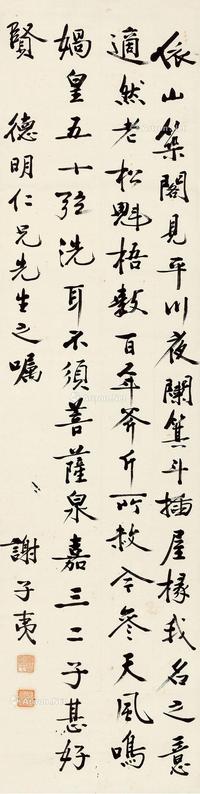 依山築閣見平川夜闌箕斗插屋椽我名之意
適然老松魁梧數百年斧斤所赦今參天風鳴
媧皇五十弦洗耳不須菩薩泉嘉三二子甚好
賢 德明仁兄先生之嘱
謝子夷